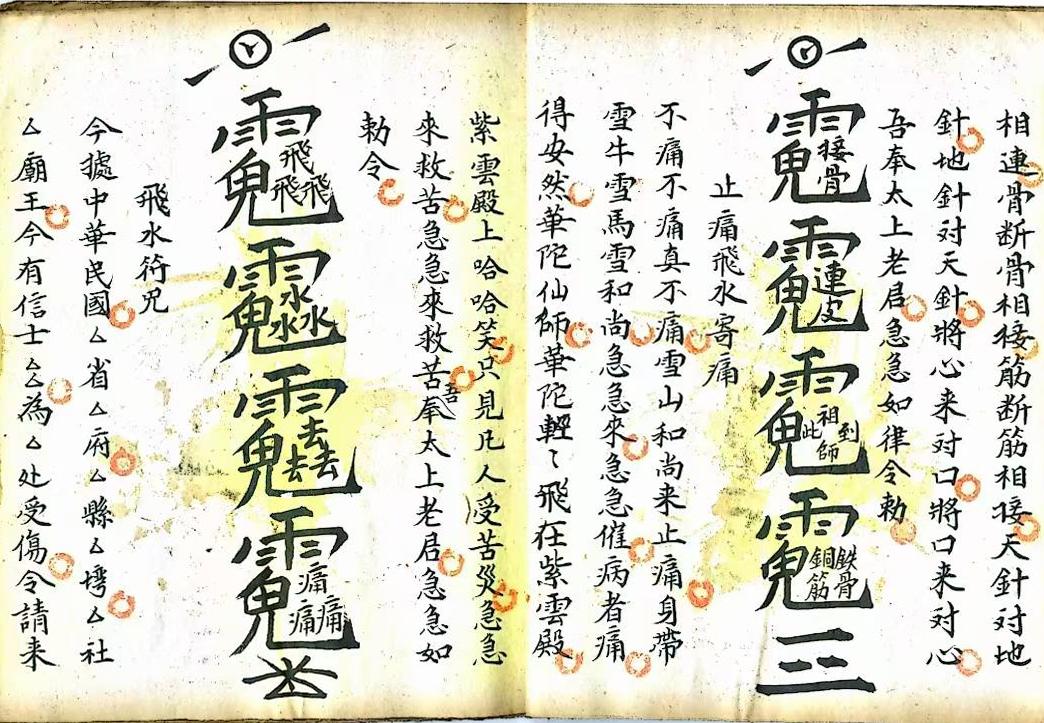 相連骨断骨相接筋断筋相接天針对地
針地針对天針將心来对口將口来对心
吾奉太上老君急急如律令勅
接骨
連皮
祖師到此
銅筋鉄骨
三
止痛飛水寄痛
不痛不痛真不痛雪山和尚来止痛身帶
雪牛雪馬雪和尚急急來急急催病者痛
得安然華陀仙師華陀輕〻飛在紫雲殿
紫雲殿上哈哈笑只見凡人受苦災急急
來救苦急急來救苦吾奉太上老君急急如
勅令
飛飛飛
水水水
去去去
痛痛痛
飛水符咒
今據中華民國厶省厶府厶縣厶塆厶社
厶廟王今有信士厶厶為厶处受傷令請来